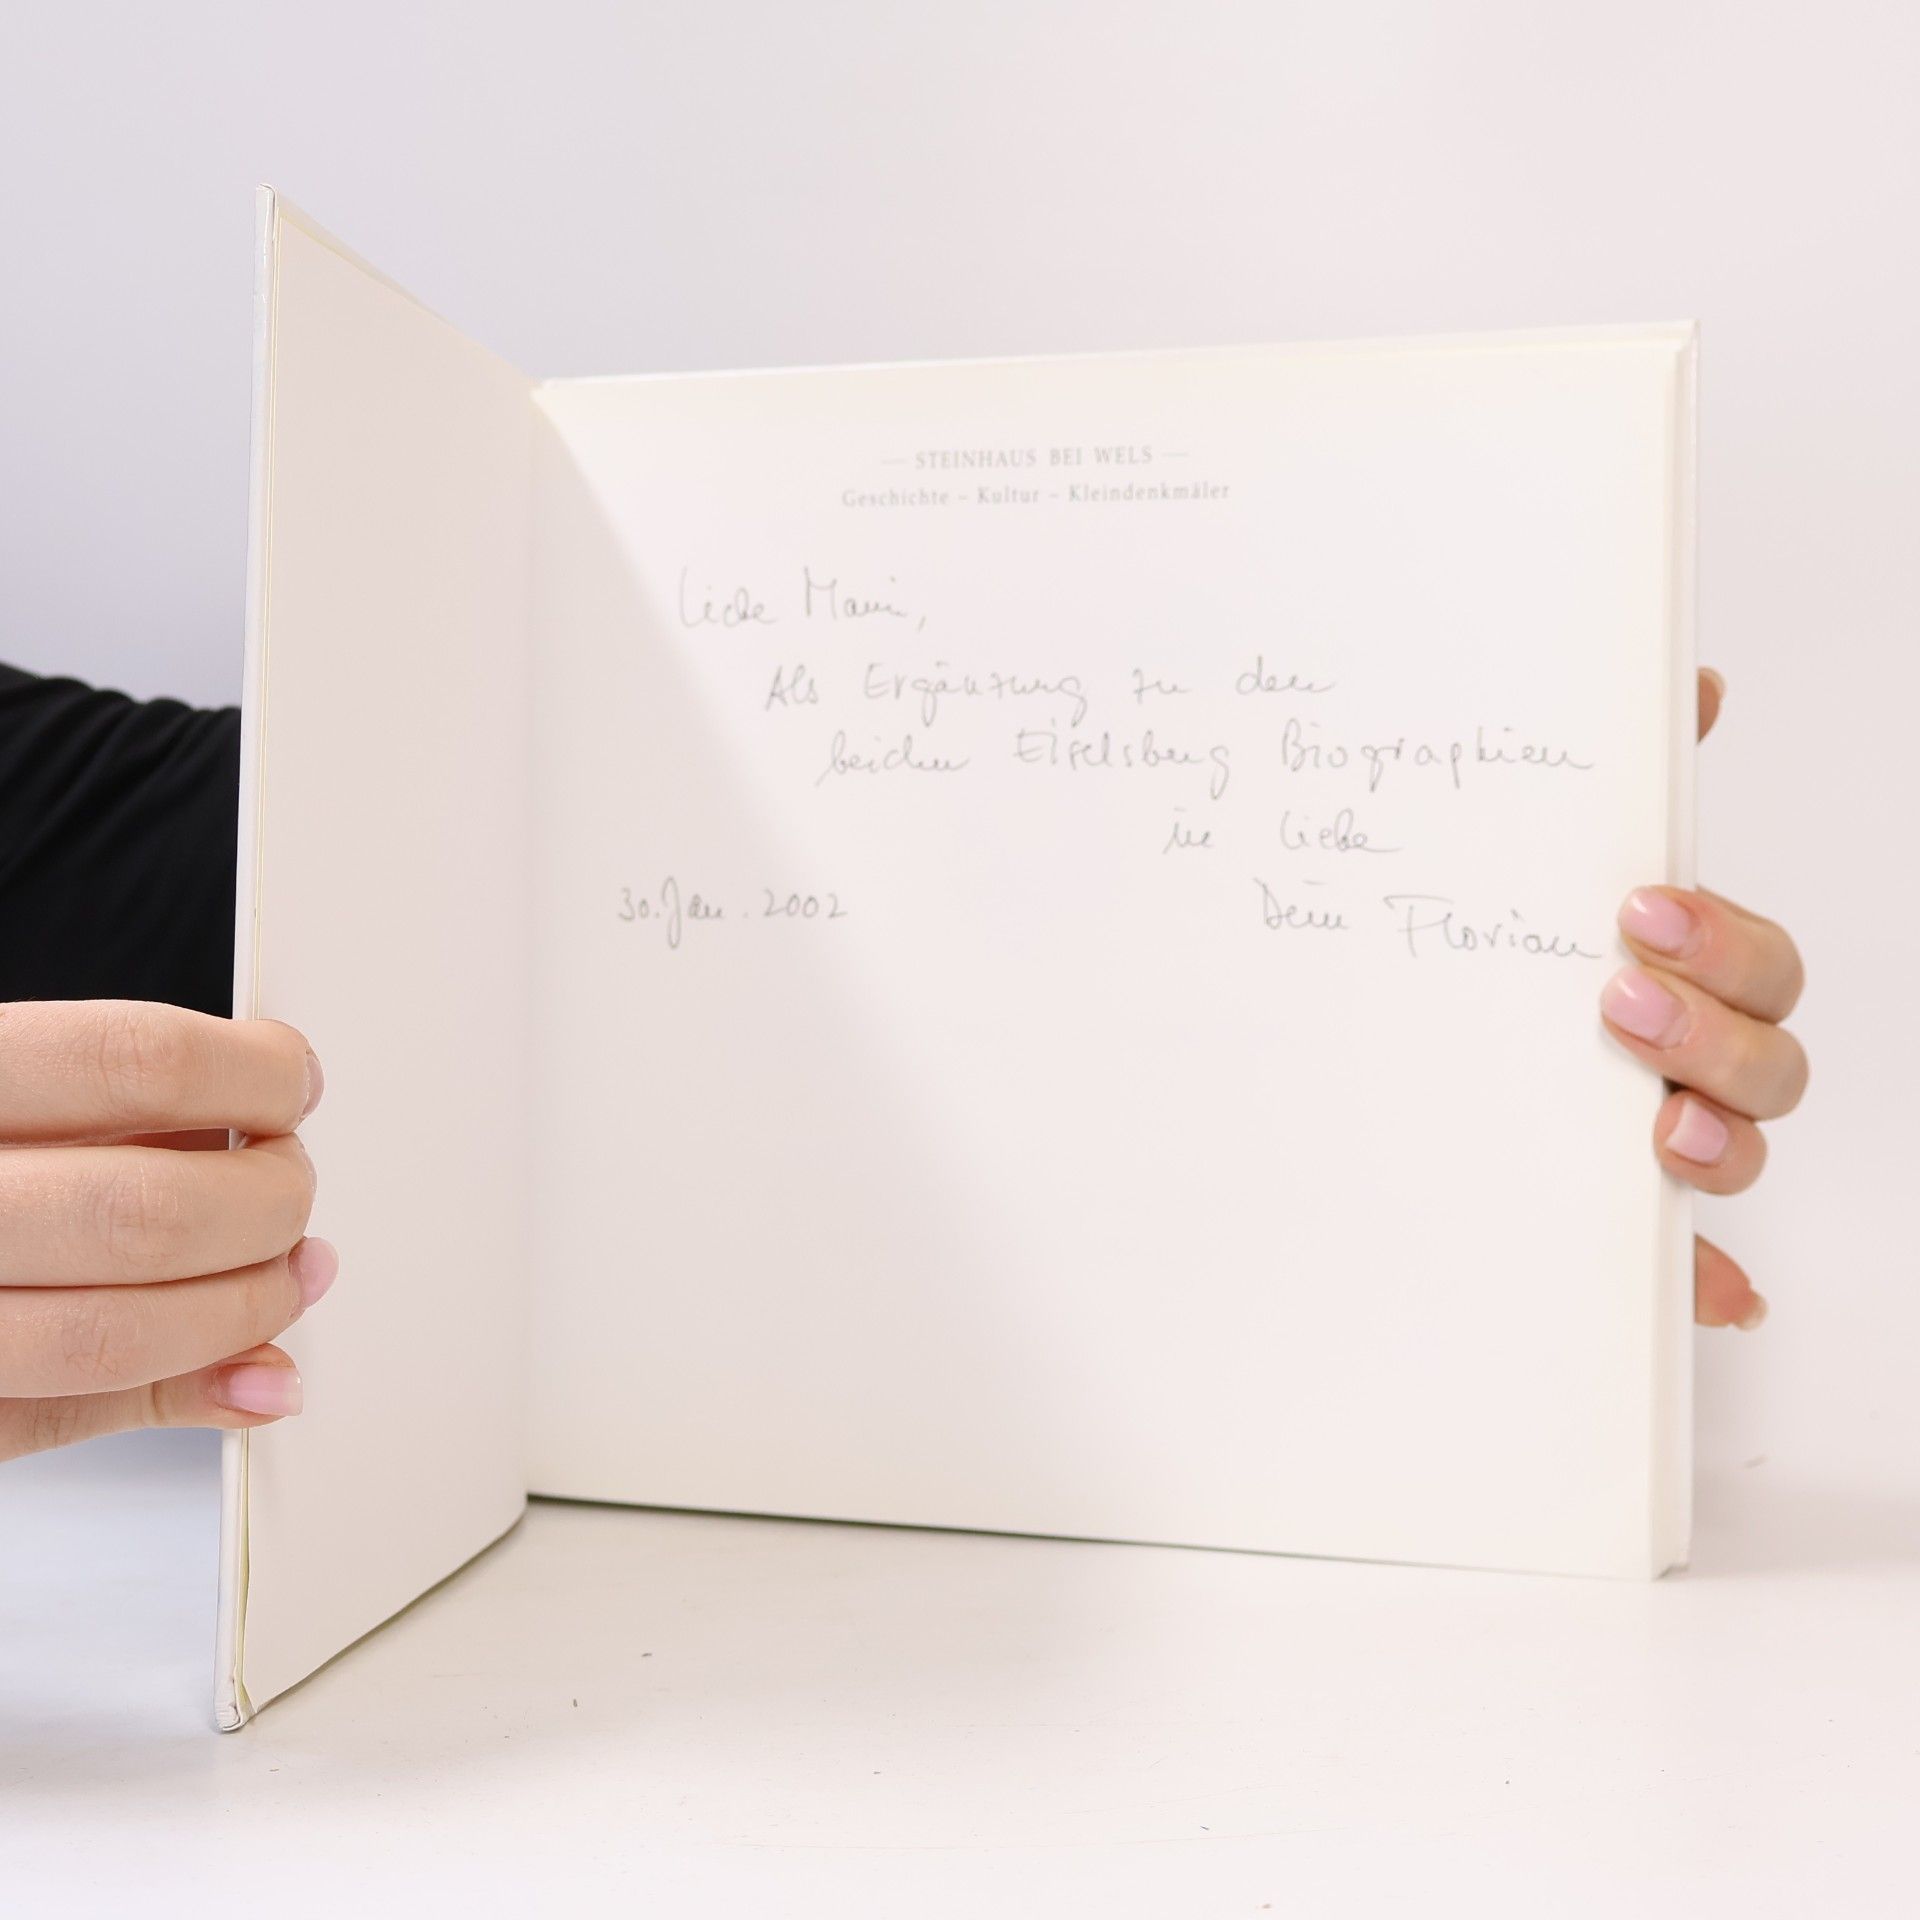 — STEINHAUS BEI WELS —
Geschichte – Kultur – Kleindenkmäler
Liebe Mami,
Als Ergänzung zu den
beiden Eiselsberg Biographien
in Liebe
30. Jan. 2002 Dein Florian